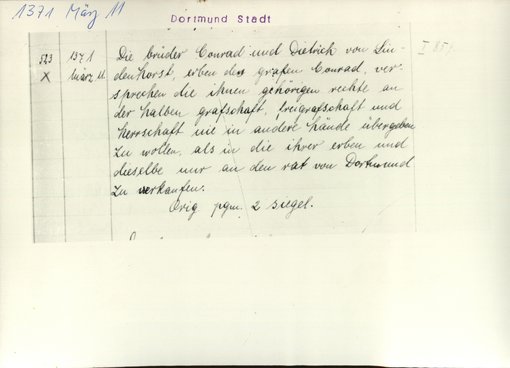 1371 März 11
Dortmund Stadt
523 1371 Die brüder Conrad und Dietrich von Lin- I 851.
X März 11 denhorst, erben des grafen Conrad, ver-
sprechen die ihnen gehörigen rechte an
der halben grafschaft, freigrafschaft und
herrschaft nie in andere hände übergeben
zu wollen, als in die ihrer erben und
dieselbe nur an den rat von Dortmund
zu verkaufen.
Orig. pgm. 2 siegel.